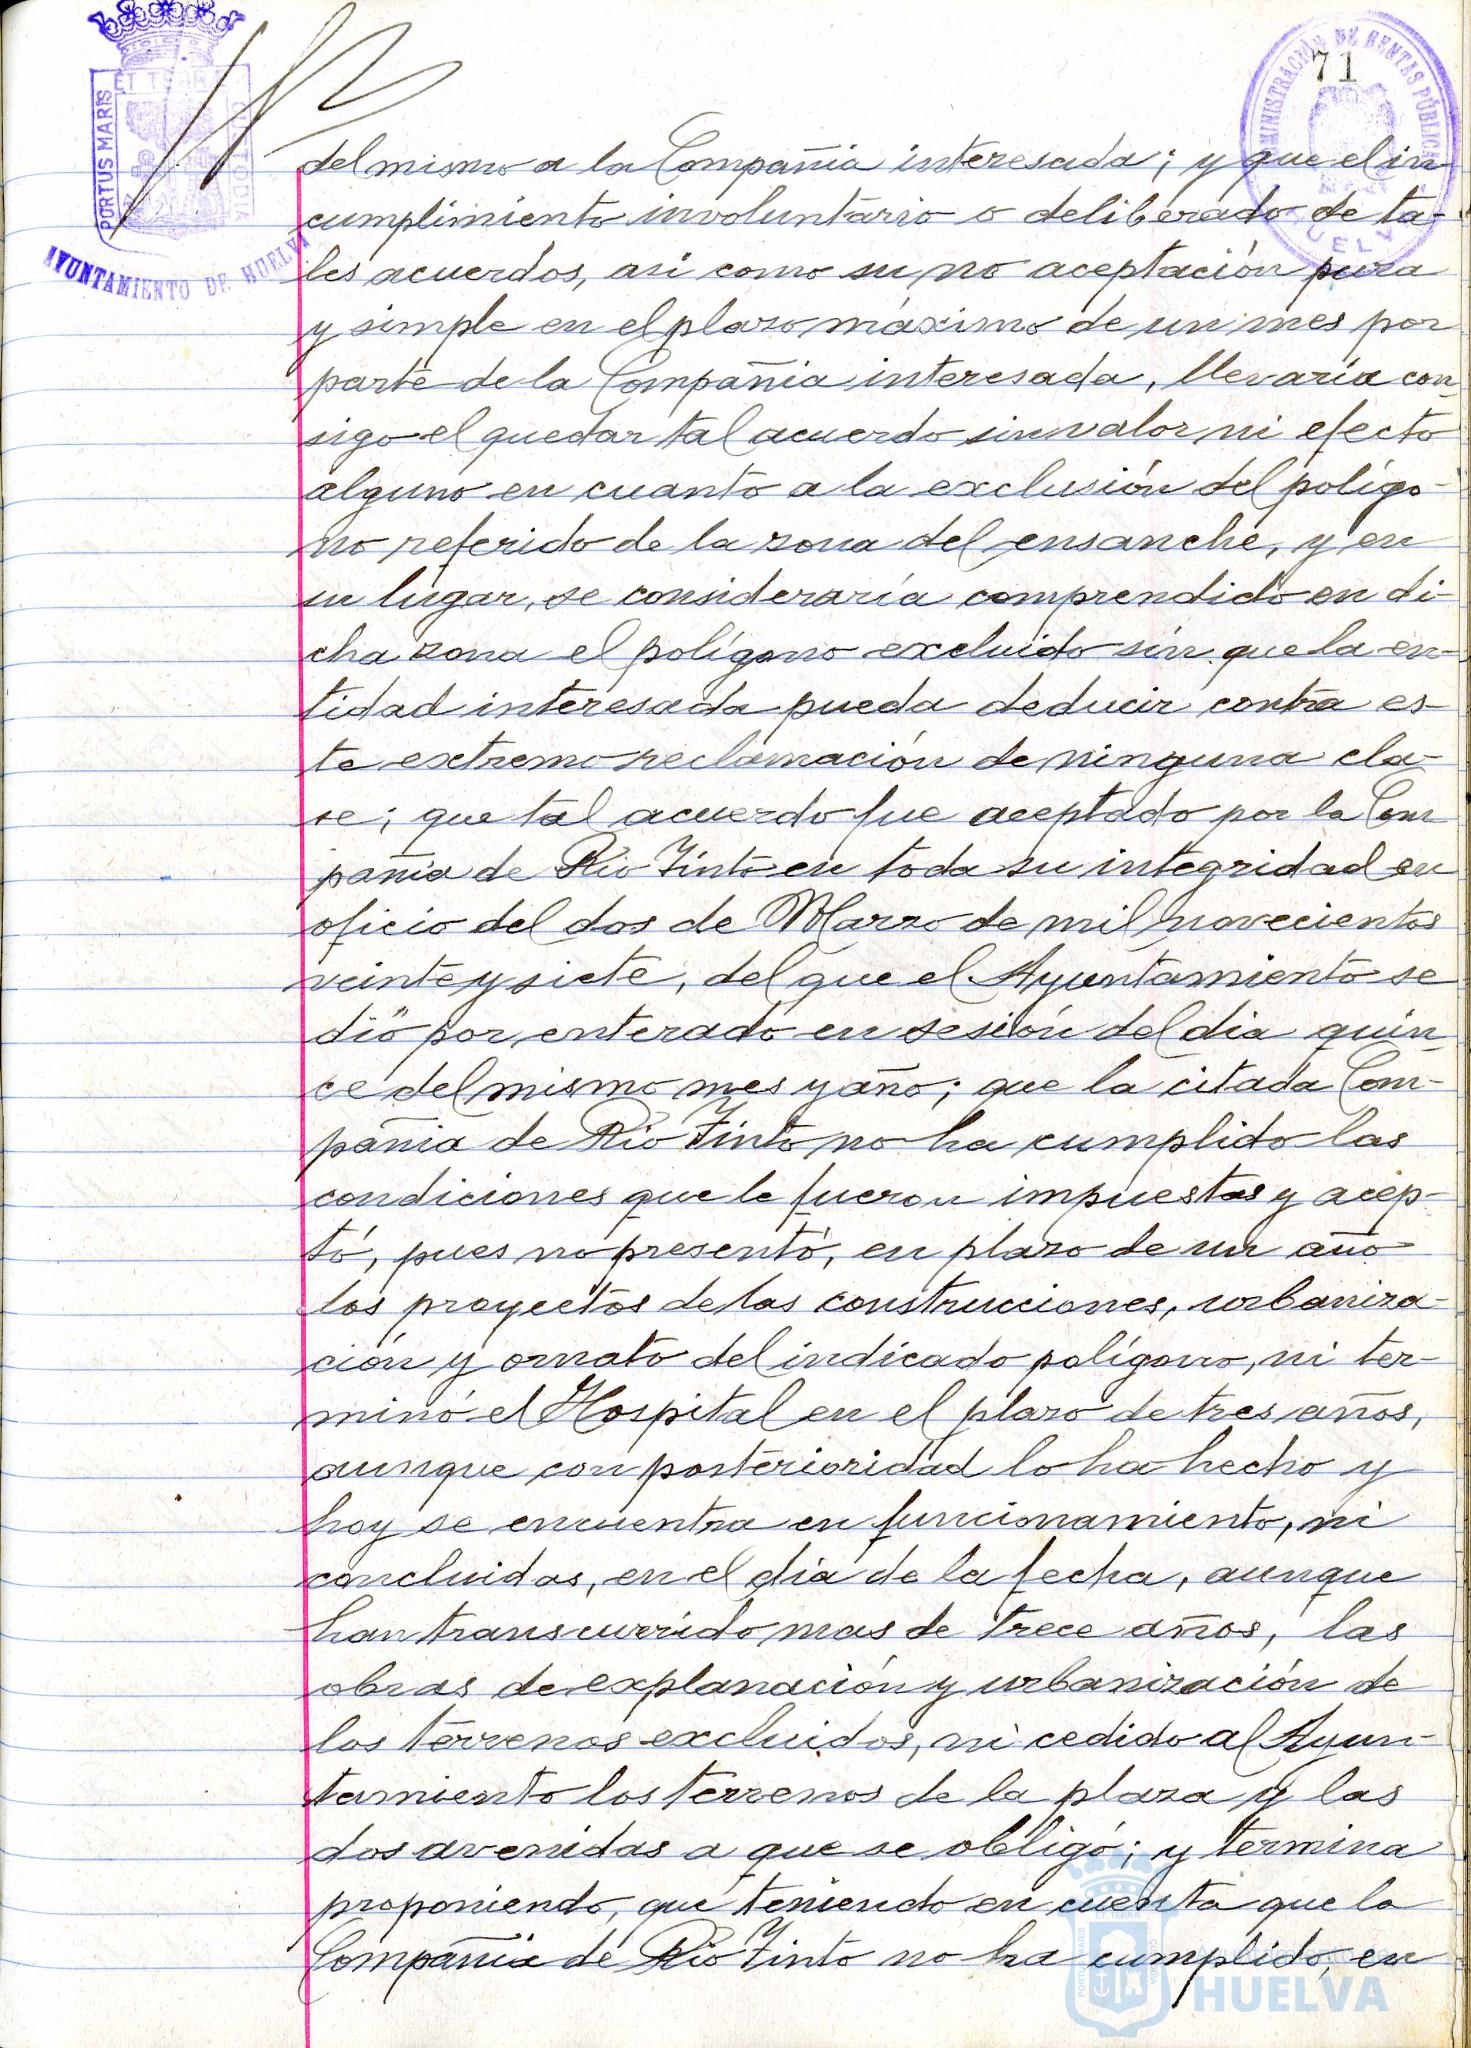 71
PORTUS MARIS ET TERRÆ CUSTODIA
AYUNTAMIENTO DE HUELVA
ADMINISTRACIÓN DE RENTAS PÚBLICAS
HUELVA
del mismo a la Compañia interesada; y que el in-
cumplimiento involuntário o deliberado de ta-
les acuerdos, asi como su no aceptación pura
y simple en el plazo máximo de un mes por
parte de la Compañia interesada, llevaría con-
sigo el quedar tal acuerdo sin valor ni efecto
alguno en cuanto a la exclusión del polígo-
no referido de la zona del ensanche, y en
su lugar, se consideraría comprendido en di-
cha zona el polígono excluido sin que la en-
tidad interesada pueda deducir contra es-
te extremo reclamación de ninguna cla-
se; que tal acuerdo fue aceptado por la Com
pañia de Rio Tinto en toda su integridad en
oficio del dos de Marzo de mil novecientos
veinte y siete, del que el Ayuntamiento se
dió por enterado en sesión del dia quin-
ce del mismo mes y año; que la citada Com-
pañia de Rio Tinto no ha cumplido las
condiciones que le fueron impuestas y acep-
tó, pues no presentó, en plazo de un año
los proyectos de las construcciones, urbaniza-
ción y ornato del indicado polígono, ni ter-
minó el Hospital en el plazo de tres años,
aunque con posterioridad lo ha hecho y
hoy se encuentra en funcionamiento, ni
concluidas, en el dia de la fecha, aunque
han transcurrido mas de trece años, las
obras de explanación y urbanización de
los terrenos excluidos, ni cedido al Ayun-
tamiento los terrenos de la plaza y las
dos avenidas a que se obligó; y termina
proponiendo, que teniendo en cuenta que la
Compañia de Rio Tinto no ha cumplido, en
HUELVA